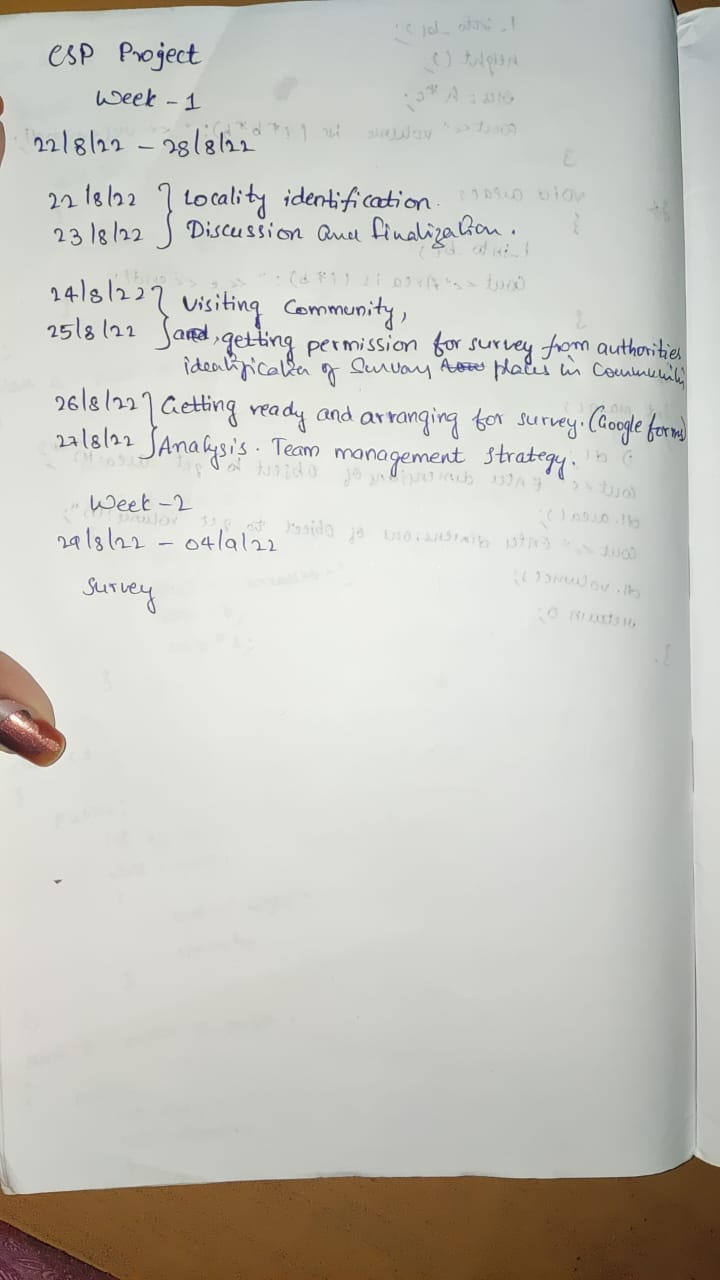 CSP Project
Week - 1
22/8/22 - 28/8/22
22/8/22 } Locality identification.
23/8/22 } Discussion and finalization.
24/8/22 } Visiting Community,
25/8/22 } and, getting permission for survey from authorities
identification of Survay places in Community
26/8/22 } Getting ready and arranging for survey. (Google forms)
27/8/22 } Analysis. Team management strategy.
Week - 2
29/8/22 - 04/9/22
Survey